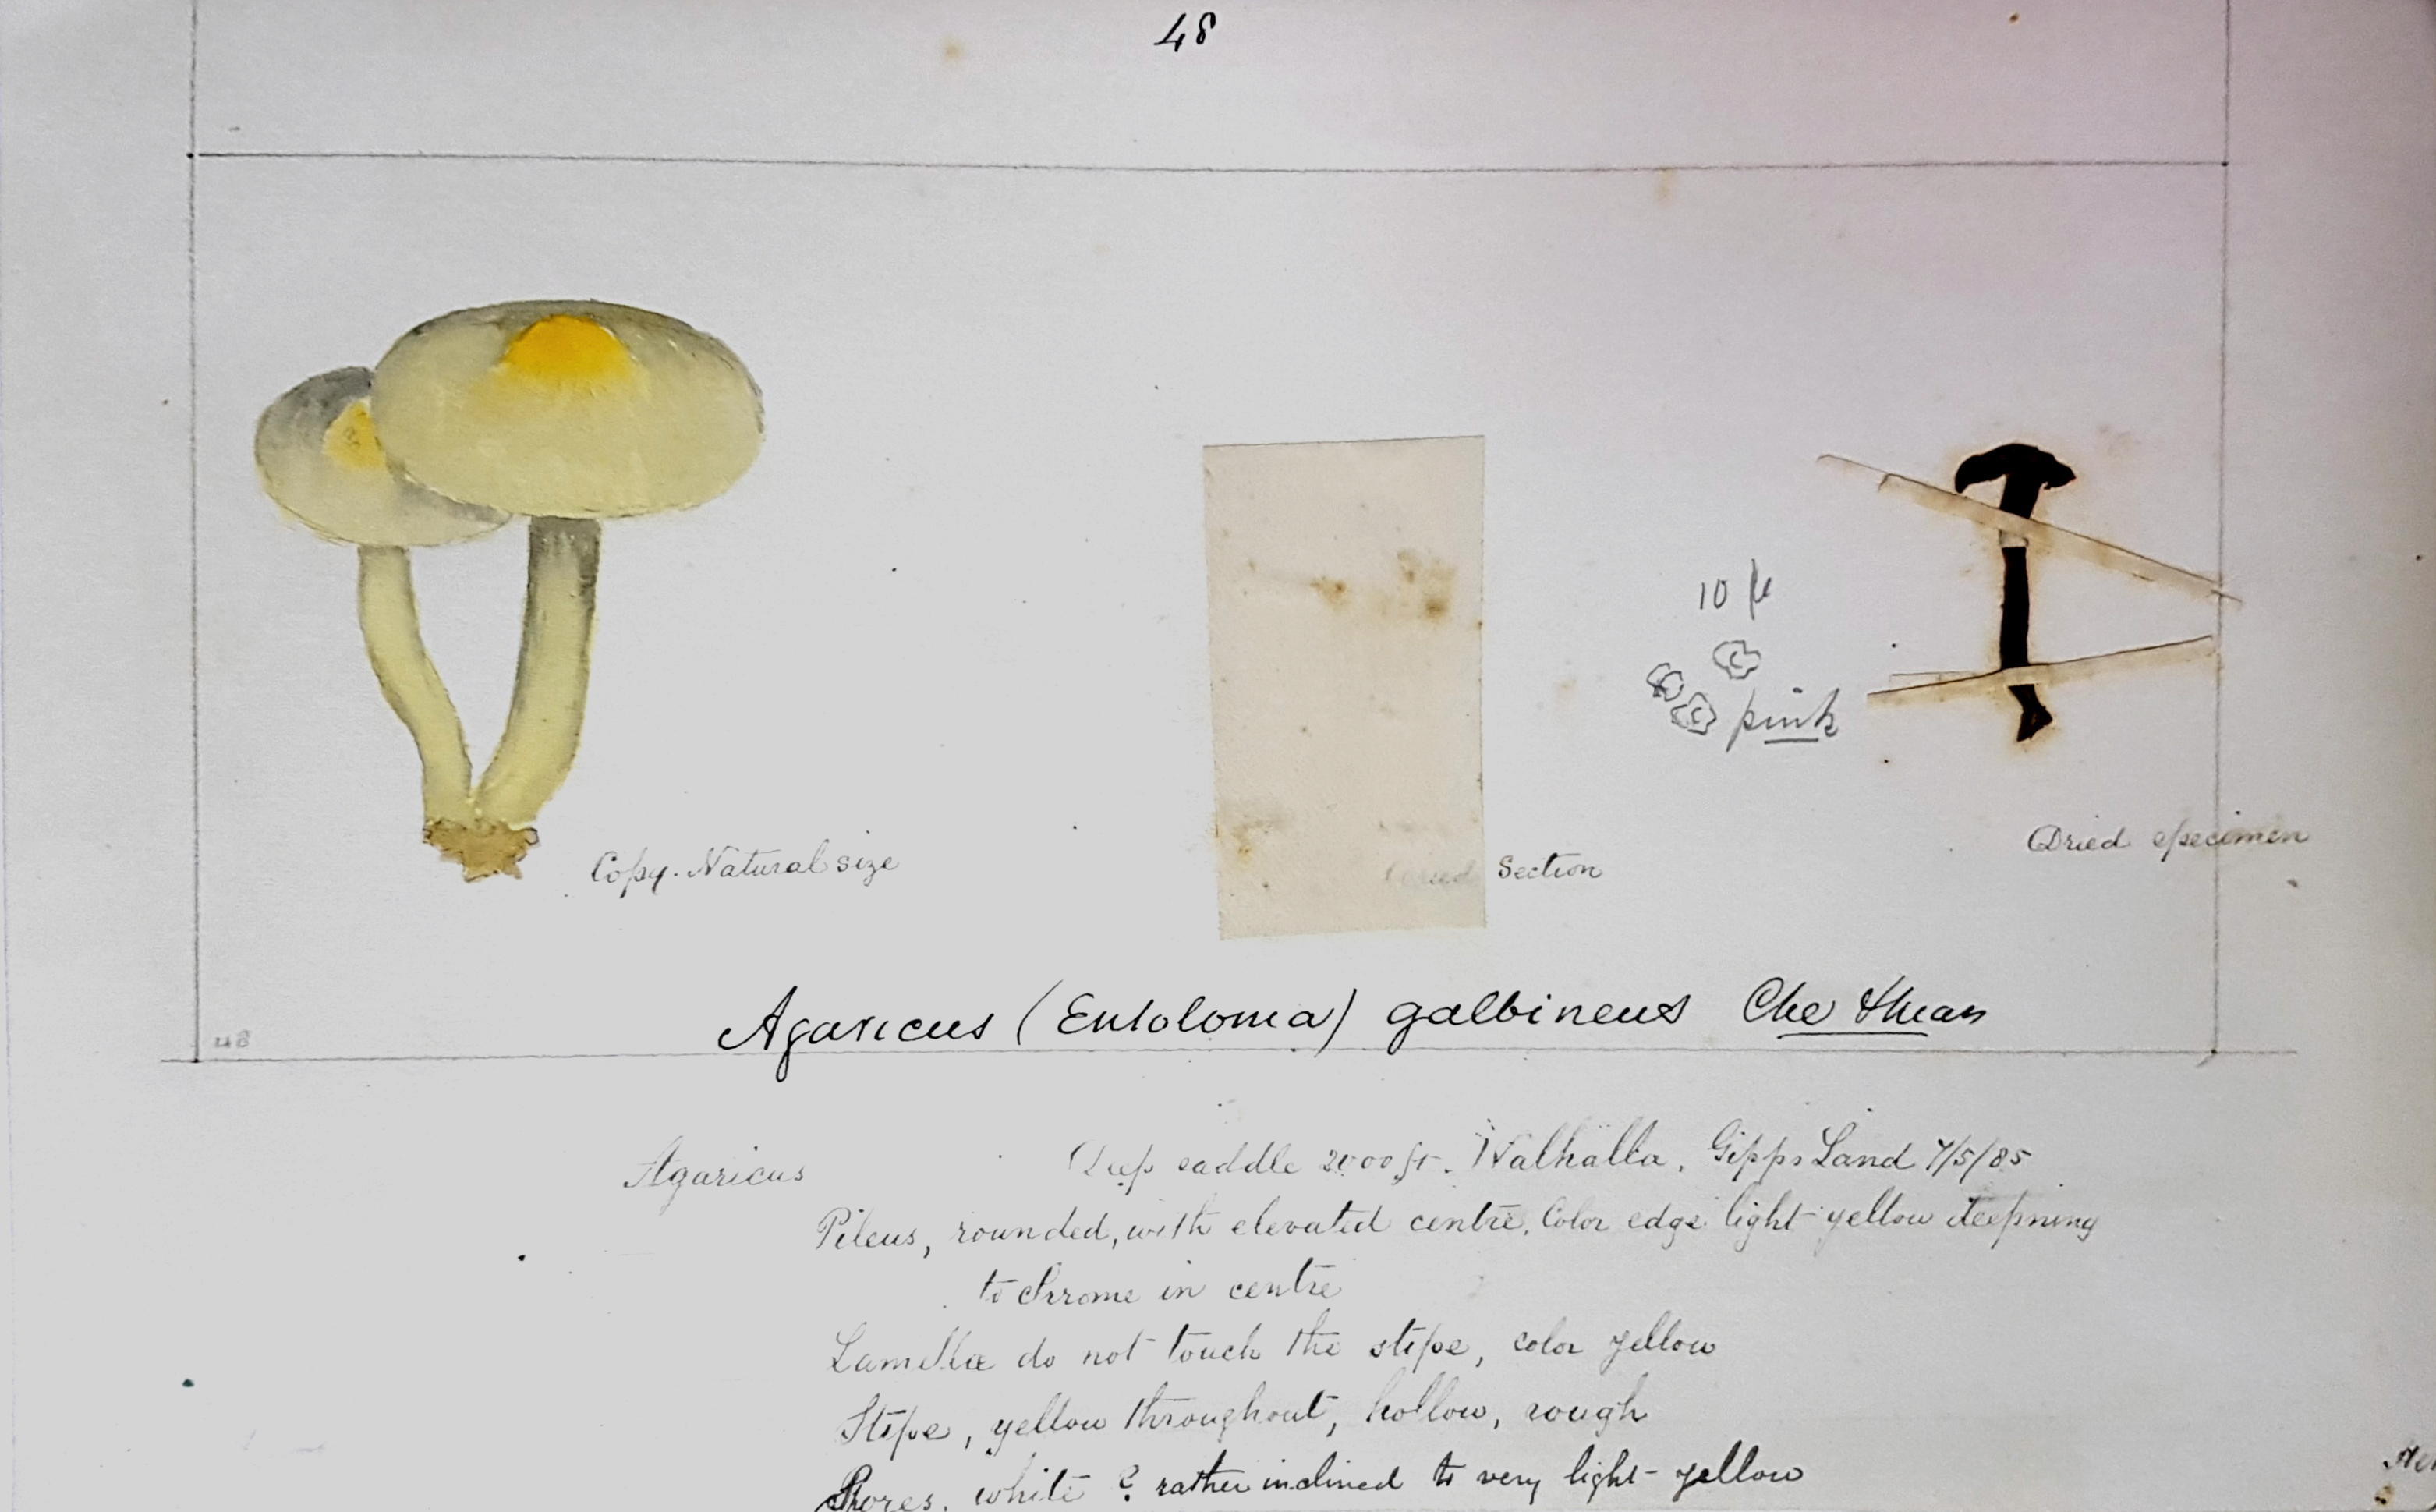 48
10 µ
pink
Copy. Natural size
Section
Dried specimen
Agaricus (Entoloma) galbineus Cke &
48
Agaricus
saddle 2000 ft. Walhalla. Gipps Land 7/5/85
Pileus, rounded, with elevated centre. Color edge light yellow deepning
to chrome in centre
Lamellæ do not touch the stipe, color yellow
Stipe, yellow throughout, hollow, rough
Spores. white ? rather inclined to very light yellow